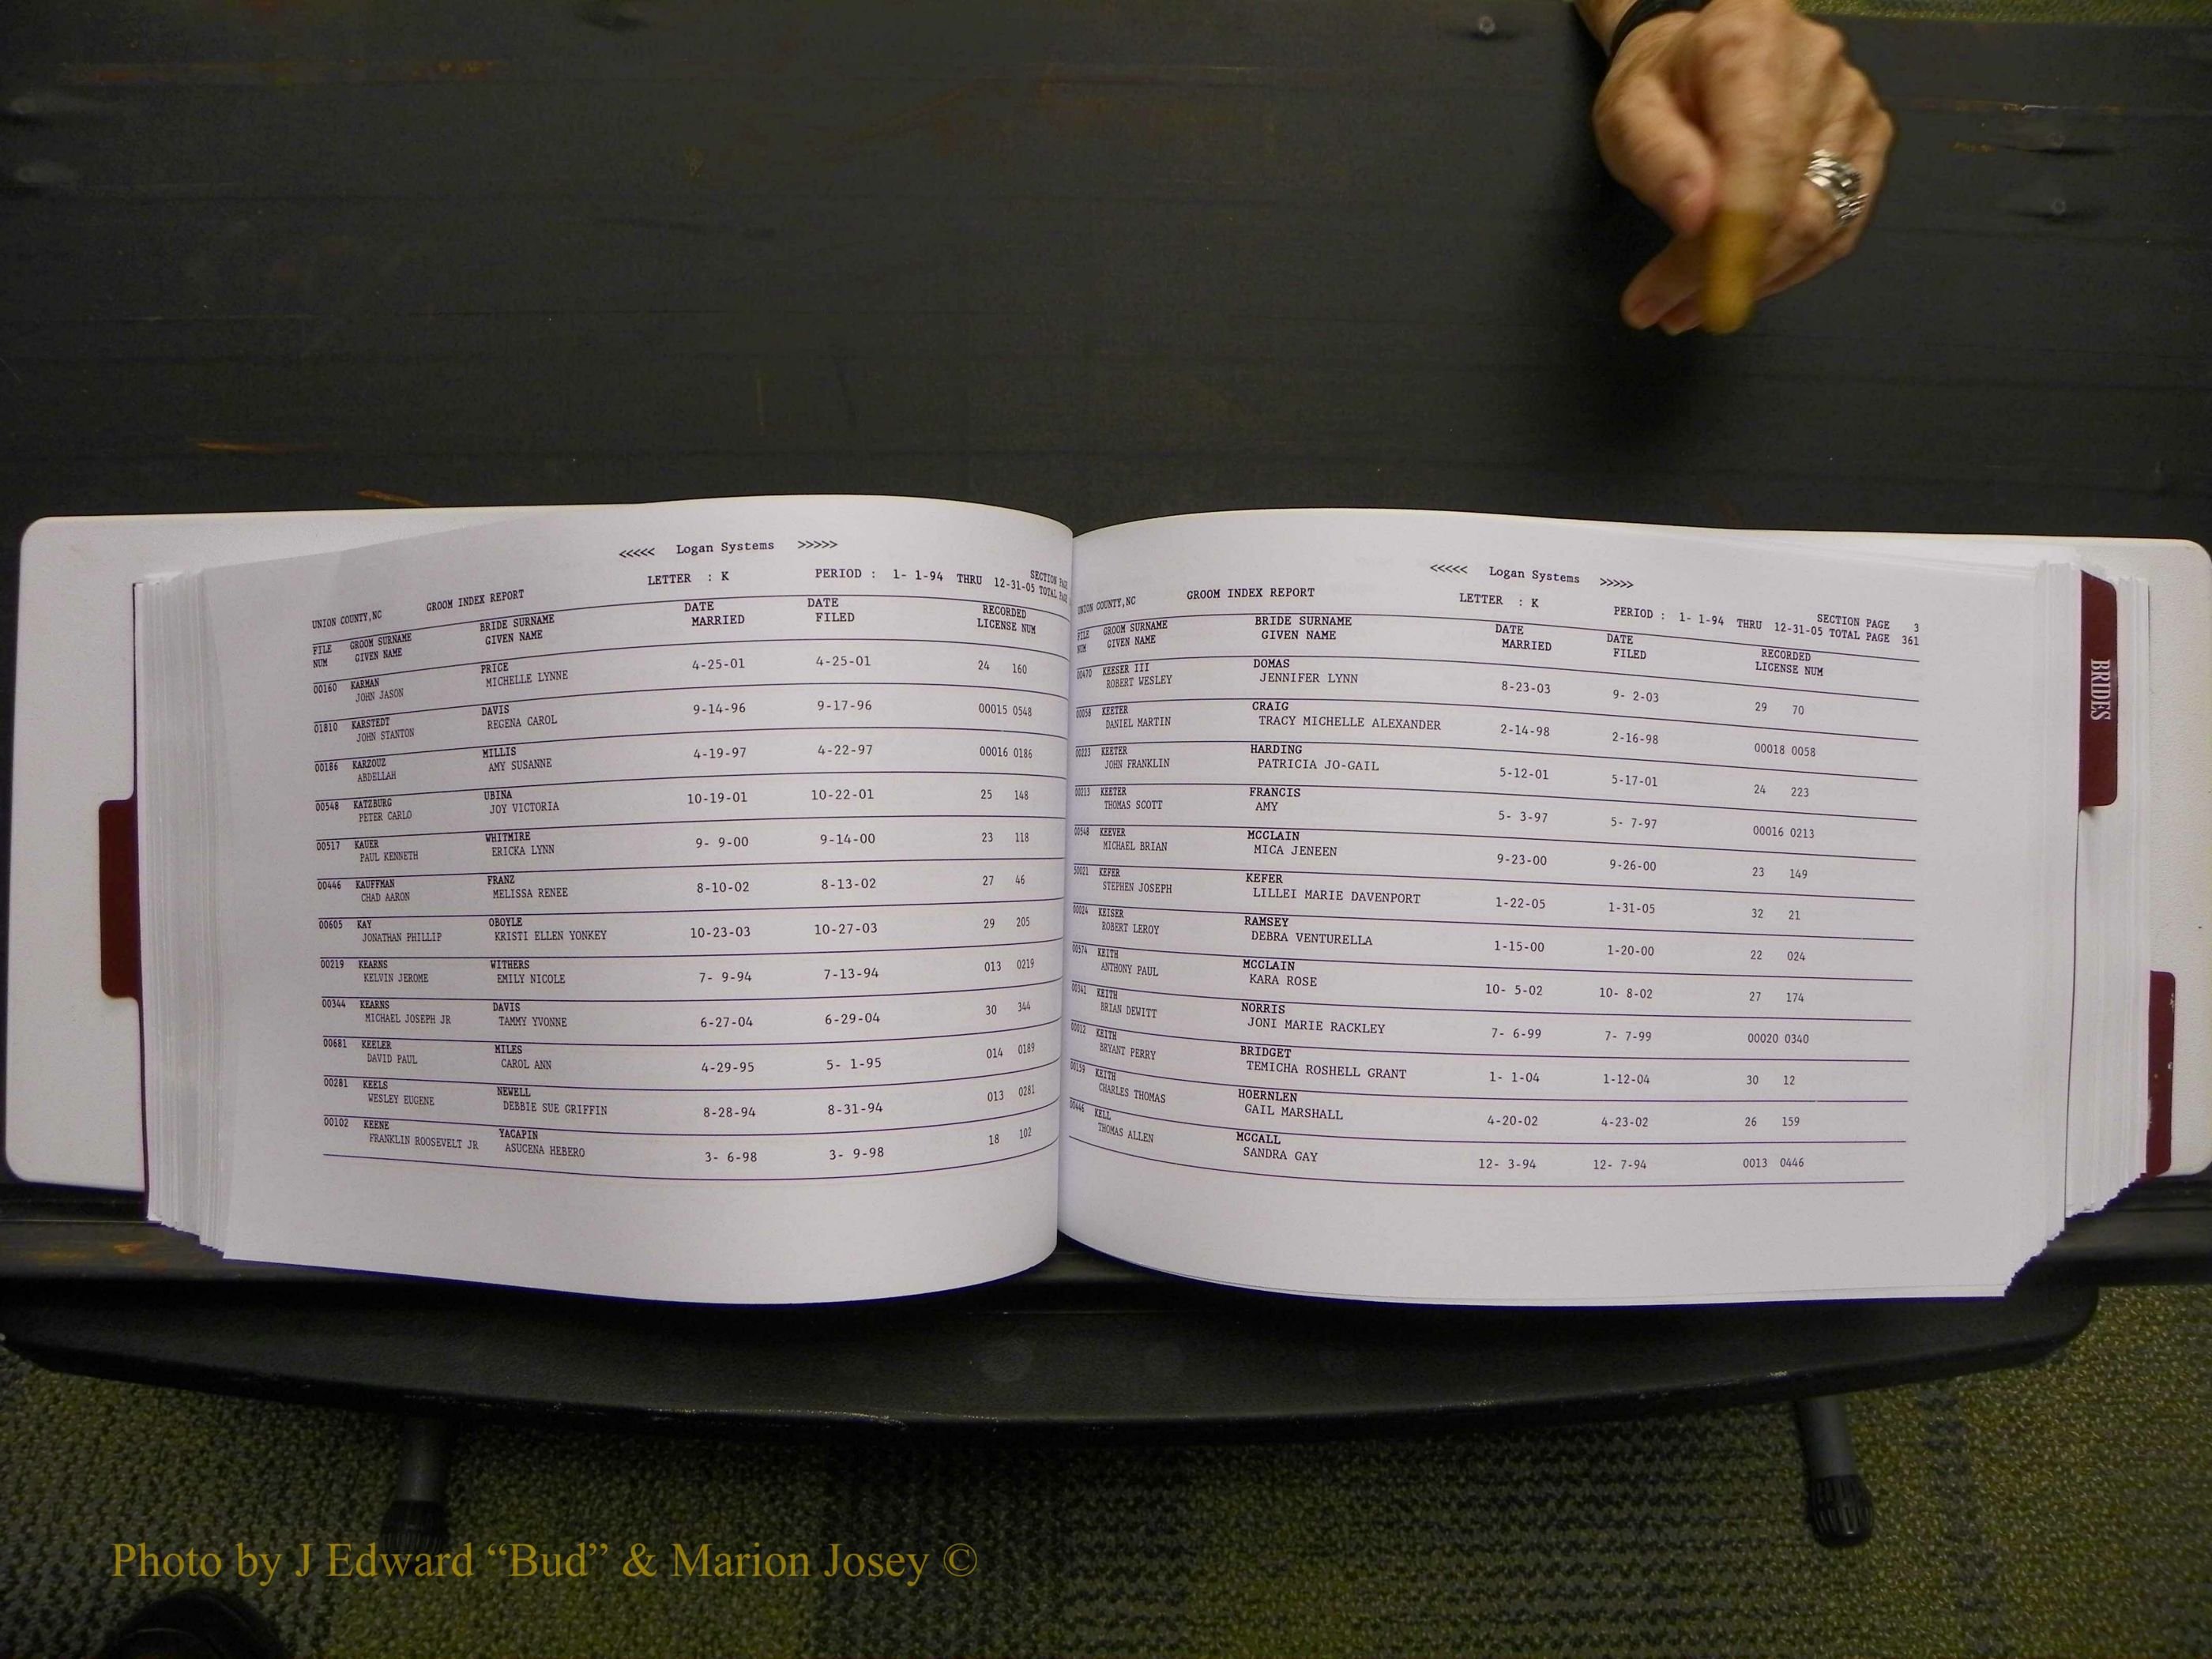 <<<<< Logan Systems >>>>>
UNION COUNTY,NC GROOM INDEX REPORT LETTER : K PERIOD : 1- 1-94 THRU 12-31-05 SECTION PAGE
TOTAL PAGE
FILE GROOM SURNAME BRIDE SURNAME DATE DATE RECORDED
NUM GIVEN NAME GIVEN NAME MARRIED FILED LICENSE NUM
00160 KARMAN PRICE 4-25-01 4-25-01 24 160
JOHN JASON MICHELLE LYNNE
01810 KARSTEDT DAVIS 9-14-96 9-17-96 00015 0548
JOHN STANTON REGENA CAROL
00186 KARZOUZ MILLIS 4-19-97 4-22-97 00016 0186
ABDELLAH AMY SUSANNE
00548 KATZBURG UBINA 10-19-01 10-22-01 25 148
PETER CARLO JOY VICTORIA
00517 KAUER WHITMIRE 9- 9-00 9-14-00 23 118
PAUL KENNETH ERICKA LYNN
00446 KAUFFMAN FRANZ 8-10-02 8-13-02 27 46
CHAD AARON MELISSA RENEE
00605 KAY OBOYLE 10-23-03 10-27-03 29 205
JONATHAN PHILLIP KRISTI ELLEN YONKEY
00219 KEARNS WITHERS 7- 9-94 7-13-94 013 0219
KELVIN JEROME EMILY NICOLE
00344 KEARNS DAVIS 6-27-04 6-29-04 30 344
MICHAEL JOSEPH JR TAMMY YVONNE
00681 KEELER MILES 4-29-95 5- 1-95 014 0189
DAVID PAUL CAROL ANN
00281 KEELS NEWELL 8-28-94 8-31-94 013 0281
WESLEY EUGENE DEBBIE SUE GRIFFIN
00102 KEENE YACAPIN 3- 6-98 3- 9-98 18 102
FRANKLIN ROOSEVELT JR ASUCENA HEBERO
<<<<< Logan Systems >>>>>
UNION COUNTY,NC GROOM INDEX REPORT LETTER : K PERIOD : 1- 1-94 THRU 12-31-05 SECTION PAGE 3
TOTAL PAGE 361
FILE GROOM SURNAME BRIDE SURNAME DATE DATE RECORDED
NUM GIVEN NAME GIVEN NAME MARRIED FILED LICENSE NUM
00470 KEESER III DOMAS 8-23-03 9- 2-03 29 70
ROBERT WESLEY JENNIFER LYNN
00058 KEETER CRAIG 2-14-98 2-16-98 00018 0058
DANIEL MARTIN TRACY MICHELLE ALEXANDER
00223 KEETER HARDING 5-12-01 5-17-01 24 223
JOHN FRANKLIN PATRICIA JO-GAIL
00213 KEETER FRANCIS 5- 3-97 5- 7-97 00016 0213
THOMAS SCOTT AMY
00548 KEEVER MCCLAIN 9-23-00 9-26-00 23 149
MICHAEL BRIAN MICA JENEEN
50021 KEFER KEFER 1-22-05 1-31-05 32 21
STEPHEN JOSEPH LILLEI MARIE DAVENPORT
00024 KEISER RAMSEY 1-15-00 1-20-00 22 024
ROBERT LEROY DEBRA VENTURELLA
00574 KEITH MCCLAIN 10- 5-02 10- 8-02 27 174
ANTHONY PAUL KARA ROSE
00341 KEITH NORRIS 7- 6-99 7- 7-99 00020 0340
BRIAN DEWITT JONI MARIE RACKLEY
00012 KEITH BRIDGET 1- 1-04 1-12-04 30 12
BRYANT PERRY TEMICHA ROSHELL GRANT
00159 KEITH HOERNLEN 4-20-02 4-23-02 26 159
CHARLES THOMAS GAIL MARSHALL
00446 KELL MCCALL 12- 3-94 12- 7-94 0013 0446
THOMAS ALLEN SANDRA GAY
BRIDES
Photo by J Edward “Bud” & Marion Josey ©